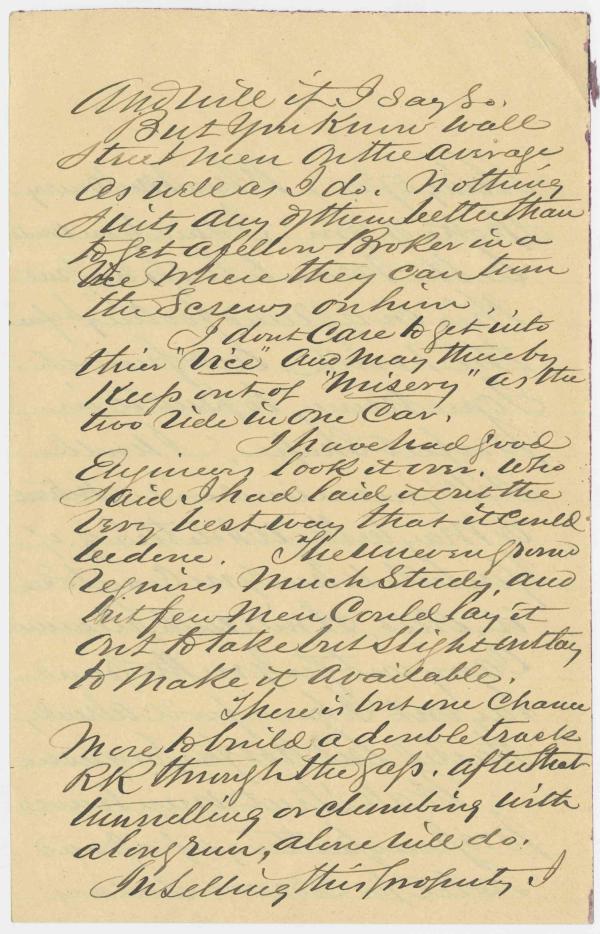 And will if I say so.
But you Know Wall
Street men on the average
as well as I do. Nothing
suits any of them better than
to get a fellow Broker in a
Vice where they can turn
the Screws on him.
I dont Care to get into
thier "Vice" and may thereby
Keep out of "Misery" as the
two ride in one Car.
I have had good
Engineers look it over. who
said I had laid it out the
very best way that it could
be done. The uneven ground
requires Much Study, and
but few men Could lay it
out to take but slight outlay
to make it available.
There is but one chance
More to build a double track
RR through the Gap. after that
tunnelling or climbing with
a long run, alone will do.
In selling this property I